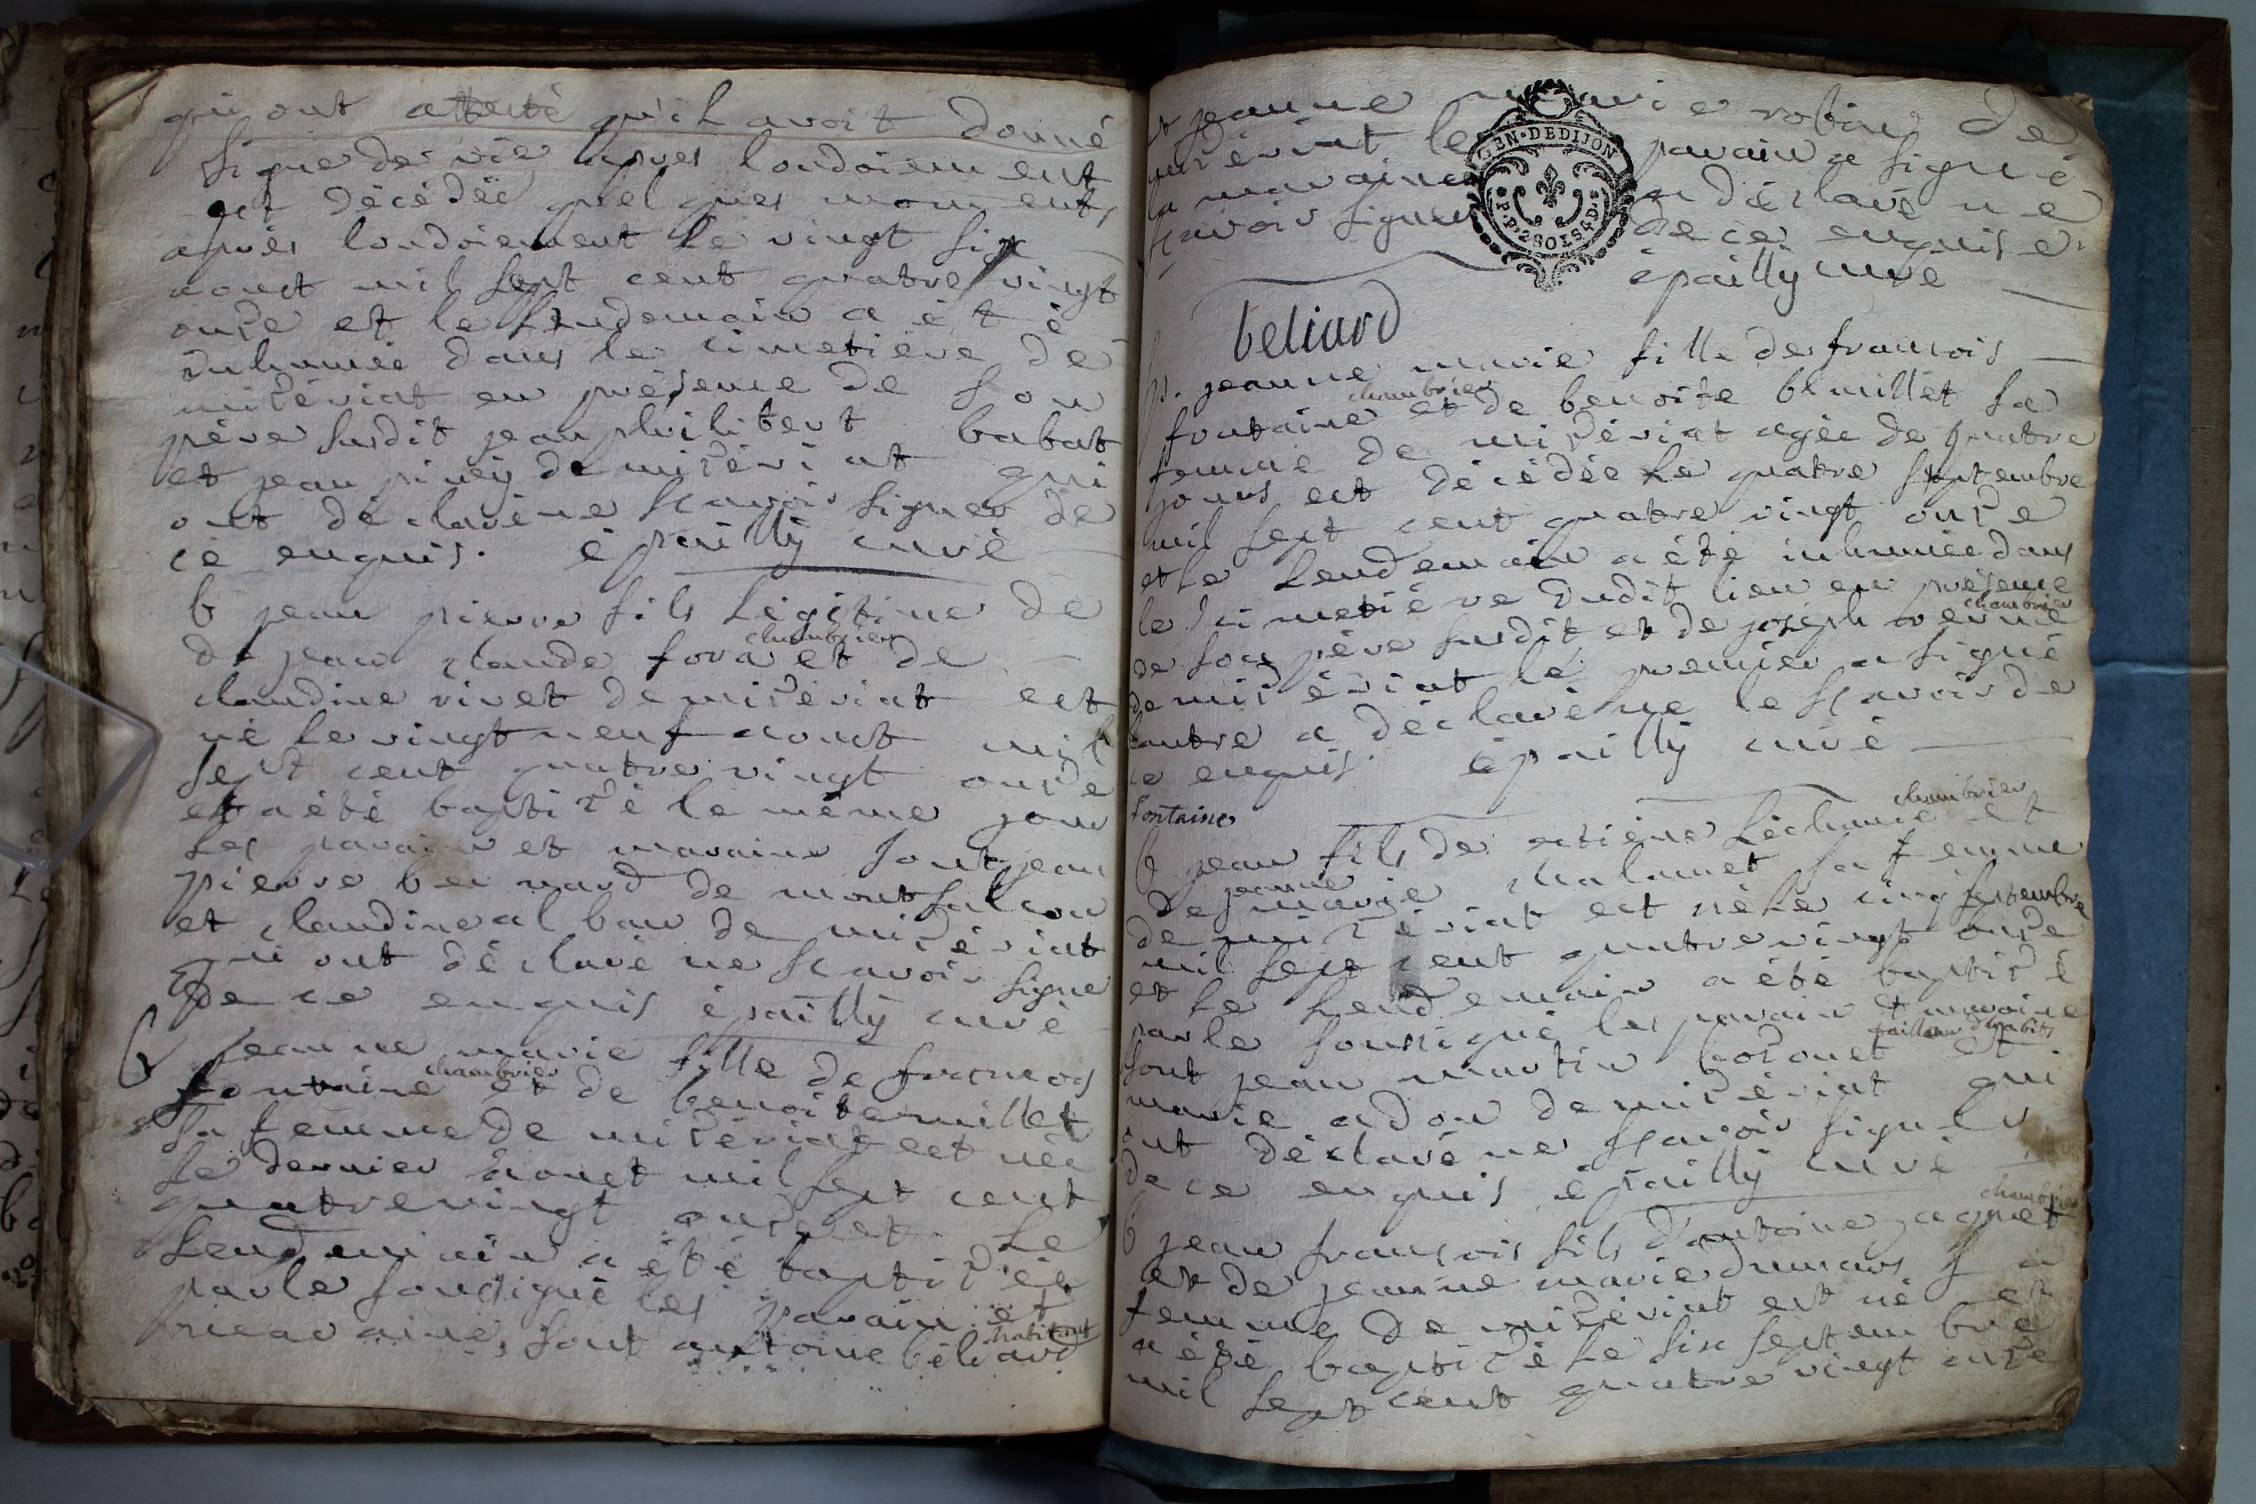 qui ont attesté qu'il avoit donné
signe de vie apres londoiement
est décédée quelques moments
après londoiement le vingt six
aoust mil sept cent quatre vingt
onze et le lendemain a été
inhumée dans le cimetière de
mizériat en présence de son
père susdit jean philibert babat
et jean piney de mizériat qui
ont déclaré ne scavoir signer de
ce enquis. épailly curé
b jean pierre fils légitime de
chambrier
de jean claude foras et de
claudine vivet de mizériat est
né le vingt neuf aoust mil
sept cent quatre vingt onze
et a été baptizé le même jour
les parain et maraine sont jean
pierre bernard de montfalcon
et claudine alban de mizériat
qui ont déclaré ne scavoir signe
de ce enquis épailly curé
b jeanne marie fille de francois
chambrier
fontaine et de benoite millet
sa femme de mizériat est née
le dernier aoust mil sept cent
quatre vingt onze et le
lendemain a été baptizée
par le sousigné les parain et
habitant
maraine, sont antoine béliard
et jeanne marie robin de
GEN·DE DIJON
mizériat le parain a signé
la maraine a déclaré ne
scavoir signer de ce enquise
épailly curé
beliard
p. jeanne marie fille de francois
chambrier
fontaine et de benoite millet sa
femme de mizériat agée de quatre
jours est décédée le quatre septembre
mil sept cent quatre vingt onze
et le lendemain a été inhumée dans
le cimetiére dudit lieu en présence
chambrier
de son père susdit et de joseph
de mizériat le premier a signé
lautre a déclaré ne le scavoir de
ce enquis. épailly curé
fontaine
chambrier
b jean fils de estiene léchaux et
jeanne
de marie chalumet sa femme
de mizériat est né le cinq septembre
mil sept cent quatre vingt onze
et le lendemain a été baptizé
par le sousigné les parain et maraine
tailleur d'habits
sont jean martin et
marie adon de mizériat qui
ont déclaré ne scavoir signer
de ce enquis épailly curé
chambrier
b jean francois fils d'antoine jagnet
et de jeanne marie dumars sa
femme de mizériat est né et
a été baptizé le six septembre
mil sept cent quatre vingt onze